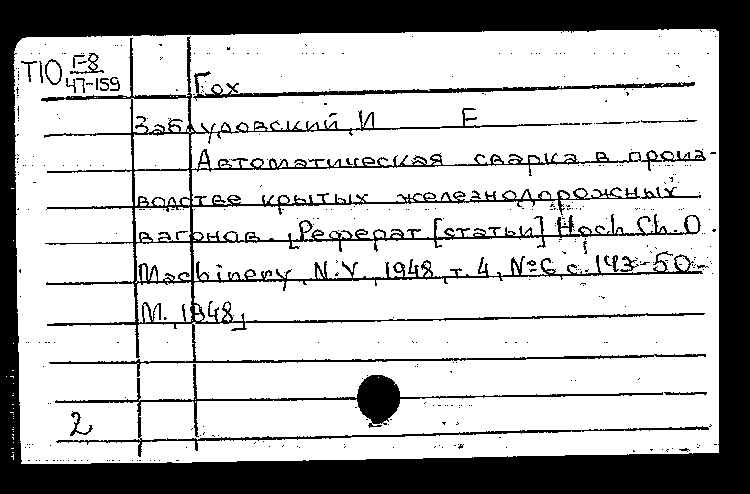 Т10 Г-8
47-159
Гох
Заблудовский, И Е
Автоматическая сварка в произ-
водстве крытых железнодорожных
вагонов. [Реферат [статьи] Hoch Ch. O.
Machinery, N.Y., 1948, т. 4, № 6, с. 143-50-
М., 1948]
2